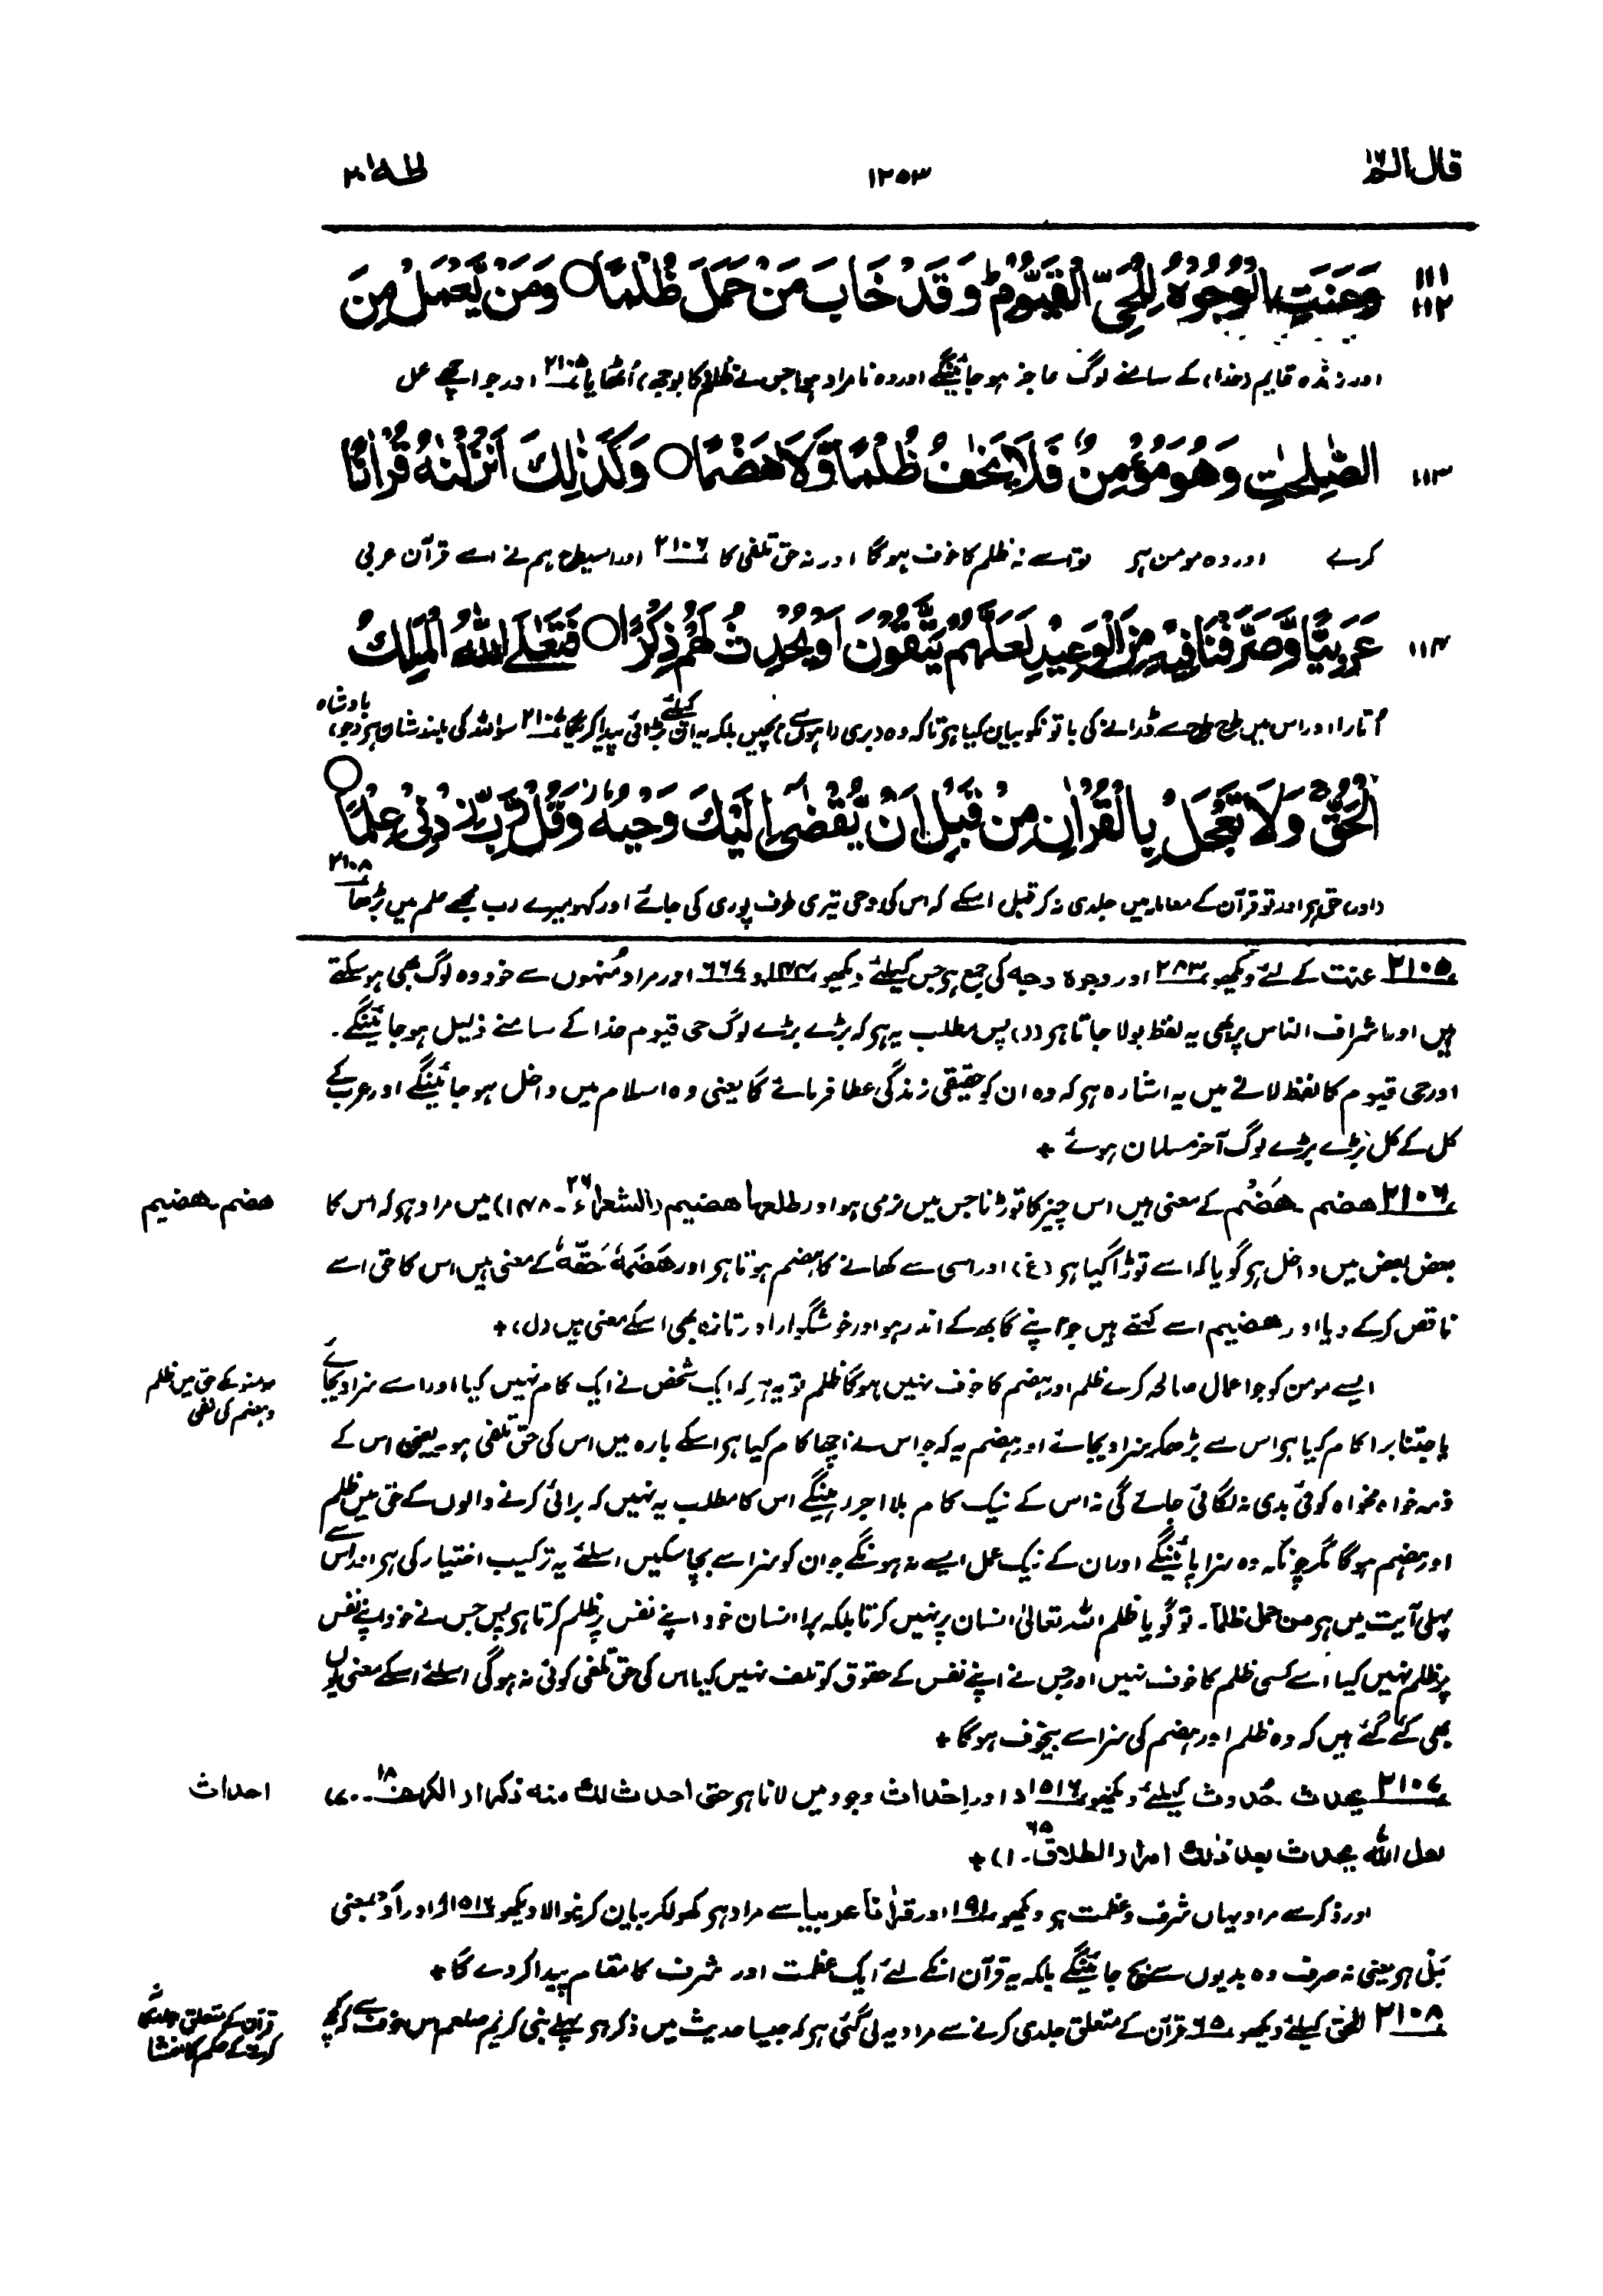 قال الم ١٦
١٢٥٣
طٰهٰ ٢٠
١١١
١١٢
وَعَنَتِ الْوُجُوْهُ لِلْحَیِّ الْقَیُّوْمِ ؕ وَقَدْ خَابَ مَنْ حَمَلَ ظُلْمًا ○ وَمَنْ یَّعْمَلْ مِنَ
اور زندہ قایم (خدا) کے سامنے لوگ عاجز ہو جائینگے اور وہ نامراد ہوا جس نے ظلم کا بوجھ، اُٹھایا ٢١٠٥ اور جو اچھے عمل
١١٣
الصّٰلِحٰتِ وَهُوَ مُؤْمِنٌ فَلَا یَخٰفُ ظُلْمًا وَّلَا هَضْمًا ○ وَكَذٰلِكَ اَنْزَلْنٰهُ قُرْاٰنًا
کرے اور وہ مومن ہو تو اسے نہ ظلم کا خوف ہوگا اور نہ حق تلفی کا ٢١٠٦ اور اسیطرح ہم نے اسے قرآن عربی
١١٤
عَرَبِیًّا وَّصَرَّفْنَا فِیْهِ مِنَ الْوَعِیْدِ لَعَلَّهُمْ یَتَّقُوْنَ اَوْ یُحْدِثُ لَهُمْ ذِكْرًا ○ فَتَعٰلَی اللّٰهُ الْمَلِكُ
اُتارا اور اس میں طرح طرح سے ڈرانے کی باتونکو بیان کیا ہو تاکہ وہ (بری راہوں سے) بچیں بلکہ یہ ان کیلئے بڑائی پیدا کریگا ٢١٠٧ سو اللہ کی بلند شان ہو (جو) بادشاہ
الْحَقُّ ۚ وَلَا تَعْجَلْ بِالْقُرْاٰنِ مِنْ قَبْلِ اَنْ یُّقْضٰۤی اِلَیْكَ وَحْیُهٗ ؗ وَقُلْ رَّبِّ زِدْنِیْ عِلْمًا ○
(اور) حق ہو اور تو قرآن کے معاملہ میں جلدی نہ کر قبل اسکے کہ اس کی وحی تیری طرف پوری کی جائے اور کہو میرے رب مجھے علم میں بڑھا ٢١٠٨
٢١٠٥ عنت کے لئے دیکھو ٢٨٣ اور وجوہ وجہ کی جمع ہو جس کیلئے دیکھو ١٤٤ و ٦٦٧ اور مراد مُنہوں سے خود وہ لوگ بھی ہو سکتے
ہیں اور اشراف الناس پر بھی یہ لفظ بولا جاتا ہو (ر) پس مطلب یہ ہو کہ بڑے بڑے لوگ حی قیوم خدا کے سامنے ذلیل ہو جائینگے۔
اور حی قیوم کا لفظ لانے میں یہ اشارہ ہو کہ وہ ان کو حقیقی زندگی عطا فرمائے گا یعنی وہ اسلام میں داخل ہو جائینگے اور عرب کے
کل کے کل بڑے بڑے لوگ آخر مسلمان ہوئے +
٢١٠٦ هضم۔ هَضْم کے معنی ہیں اس چیز کا توڑنا جس میں نرمی ہو اور طلعها هضيم (الشعراء ٢٦۔١٤٨) میں مراد ہو کہ اس کا
هضم۔هضيم
بعض بعض میں داخل ہو گویا کہ اسے توڑا گیا ہو (غ) اور اسی سے کھانے کا ہضم ہوتا ہو اور هَضَمَهٗ حَقَّهٗ کے معنی ہیں اس کا حق اسے
ناقص کرکے دیا اور هضيم اسے کہتے ہیں جو اپنے گابھ کے اندر ہو اور خوشگوار اور تازہ بھی اسکے معنی ہیں (ل) +
ایسے مومن کو جو اعمال صالحہ کرے ظلم اور ہضم کا خوف نہیں ہوگا ظلم تو یہ ہو کہ ایک شخص نے ایک کام نہیں کیا اور اسے سزا دیجائے
مومنو کے حق میں ظلم
وہضم کی نفی
یا جتنا برا کام کیا ہو اس سے بڑھکر سزا دیجائے اور ہضم یہ کہ جو اس نے اچھا کام کیا ہو اسکے بارہ میں اس کی حق تلفی ہو۔ یعنی اس کے
ذمہ خواہ مخواہ کوئی بدی نہ لگائی جائے گی نہ اس کے نیک کام بلا اجر رہینگے اس کا مطلب یہ نہیں کہ برائی کرنے والوں کے حق میں ظلم
اور ہضم ہوگا مگر چونکہ وہ سزا پائینگے اور ان کے نیک عمل ایسے نہ ہونگے جو ان کو سزا سے بچا سکیں اسلئے یہ ترکیب اختیار کی ہو اور اس سے
پہلی آیت میں ہو من حمل ظلماً۔ تو گویا ظلم اللہ تعالیٰ انسان پر نہیں کرتا بلکہ برا انسان خود اپنے نفس پر ظلم کرتا ہو پس جس نے خود اپنے نفس
پر ظلم نہیں کیا اسے کسی ظلم کا خوف نہیں اور جس نے اپنے نفس کے حقوق کو تلف نہیں کیا اس کی حق تلفی کوئی نہ ہوگی اسلئے اسکے معنی یوں
بھی کئے گئے ہیں کہ وہ ظلم اور ہضم کی سزا سے بیخوف ہوگا +
٢١٠٧ يحدث حُدوث کیلئے دیکھو ١٥١٦ اور اِحْدَاث وجود میں لانا ہو حتى احدث لك منه ذكرا (الكهف ١٨۔٧٠)
احداث
لعل الله يحدث بعد ذلك امرا (الطلاق ٦٥۔١) +
اور ذکر سے مراد یہاں شرف وعظمت ہو دیکھو ١٩١ اور قرأنا عربيا سے مراد ہو کھولکر بیان کرنیوالا دیکھو ١٥١٦ اور اَوْ بمعنی
بَلْ ہو یعنی نہ صرف وہ بدیوں سے بچ جائینگے بلکہ یہ قرآن انکے لئے ایک عظمت اور شرف کا مقام پیدا کردے گا +
٢١٠٨ الحق کیلئے دیکھو ٦٥ قرآن کے متعلق جلدی کرنے سے مراد یہ لی گئی ہو کہ جیسا حدیث میں ذکر ہو پہلے نبی کریم صلعم اس خوف سے کہ کچھ
قرآن کے متعلق جلدی نہ
کرنے کے حکم کا منشا